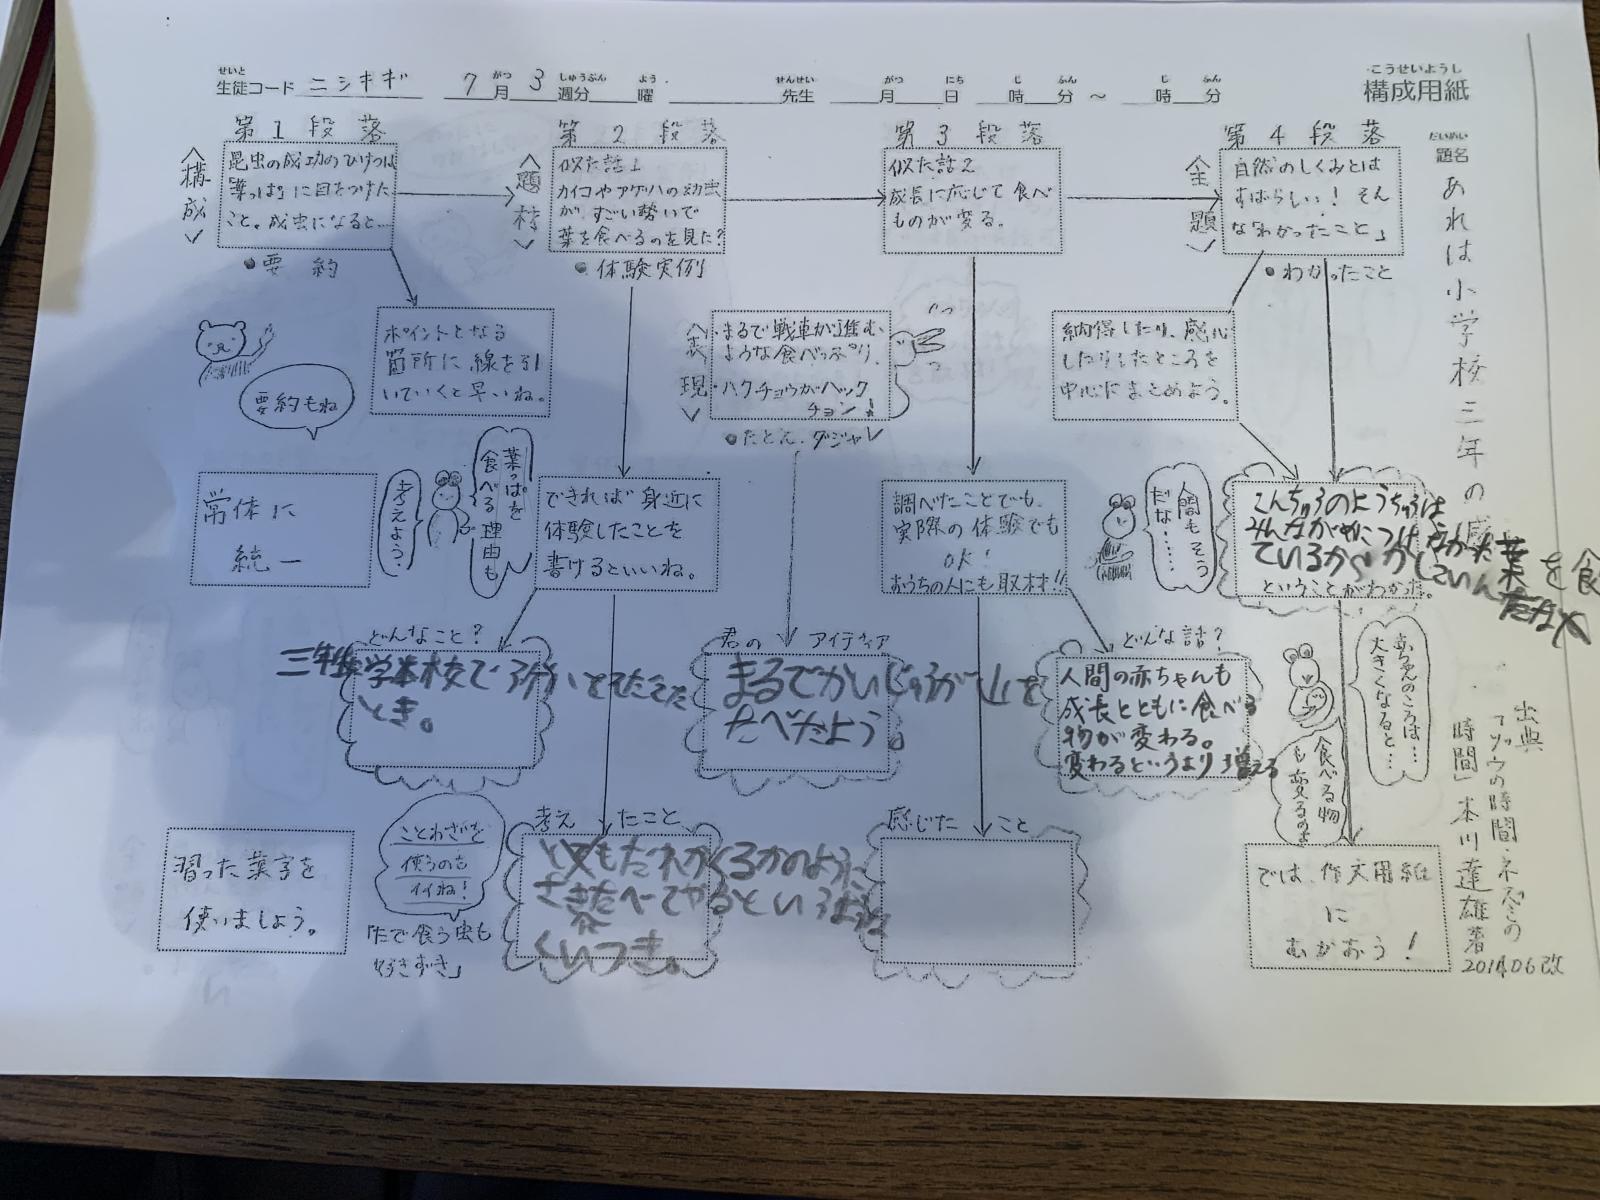 せいと がつ しゅうぶん よう せんせい がつ にち じ ふん じ ふん こうせいようし
生徒コード ニシキギ 7月3週分 曜 先生 月 日 時 分 ～ 時 分
構成用紙
だいめい
題名 あれは小学校三年の
出典「ゾウの時間ネズミの
時間」本川達雄著
201406改
第1段落
〈構成〉
昆虫の成功のひけつは
「葉っぱ」に目をつけた
こと。成虫になると…
●要約
ポイントとなる
箇所に線を引
いていくと早いね。
要約もね
常体に
統一
習った漢字を
使いましょう。
第2段落
〈題材〉
似た話1
カイコやアゲハの幼虫
が、すごい勢いで
葉を食べるのを見た?
●体験実例
できれば身近に
体験したことを
書けるといいね。
葉っぱを
食べる理由も
考えよう。
どんなこと?
とき。
考えたこと
くいつき。
ことわざを
使うのも
イイね!
「たで食う虫も
好きずき」
〈表現〉
まるで戦車が進む
ような食べっぷり、
ハクチョウがハックション!
●たとえ、ダジャレ
君のアイディア
まるでかいじゅうが山を
たべたよう
第3段落
似た話2
成長に応じて食べ
ものが変る。
調べたことでも、
実際の体験でも
OK!
おうちの人にも取材!!
人間もそう
だな……
どんな話?
人間の赤ちゃんも
成長とともに食べる
物が変わる。
変わるというより増える
感じたこと
第4段落
〈主題〉
自然のしくみとは
すばらしい! そん
な「わかったこと」
●わかったこと
納得したり、感心
したりしたところを
中心にまとめよう。
こんちゅうのようちゅうは
みんなが目につけなかった葉を食
べているからかしこいんだなぁ
ということがわかった。
赤ちゃんのころは…
大きくなると…
食べる物
も変るのよ
では、作文用紙
に
むかおう!